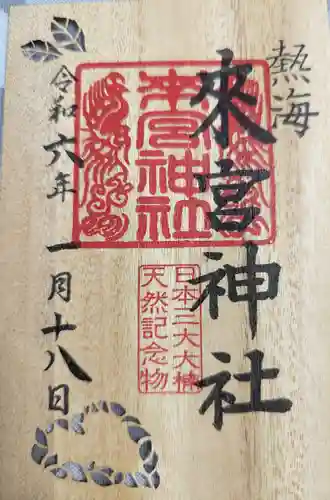 熱海
來宮神社
來宮神社
日本三大大楠
天然記念物
令和六年一月十八日